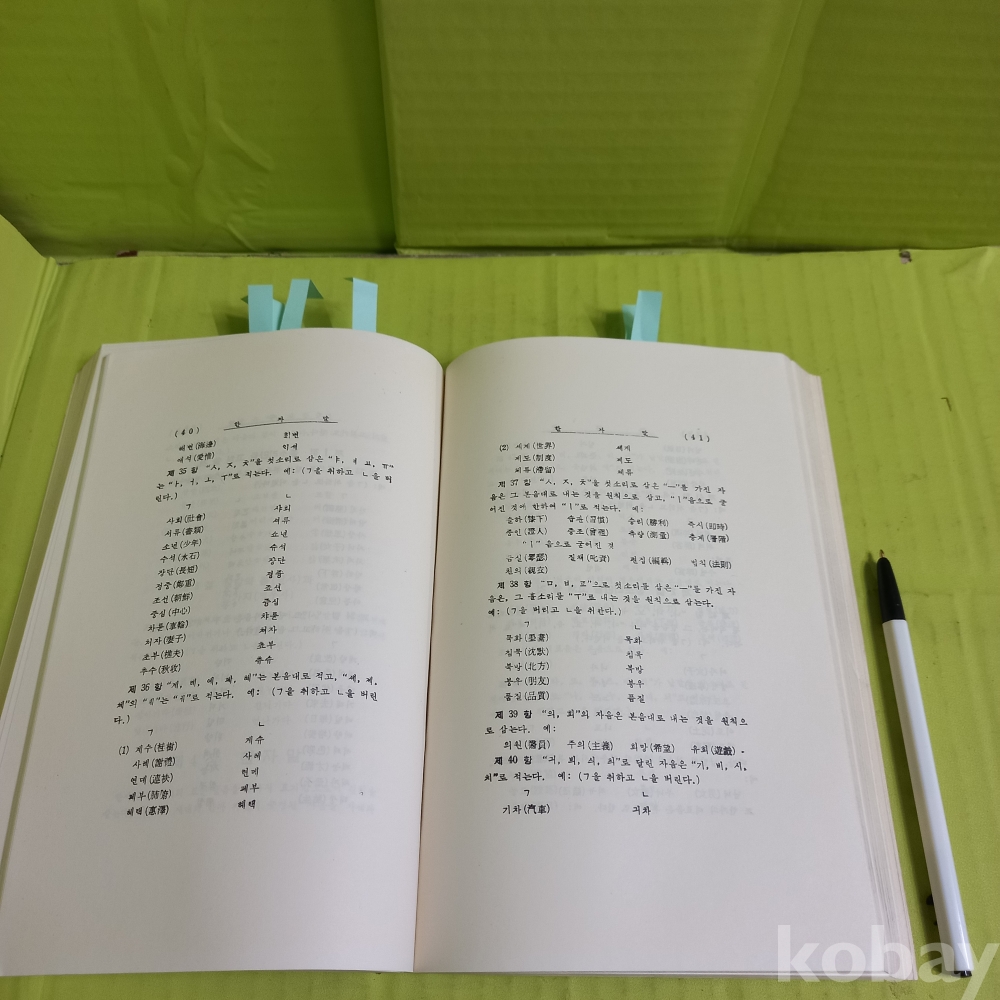 (40) 한 자 말
해변(海邊) 히변
애석(愛惜) 이셕
제 35 항 "ㅅ, ㅈ, ㅊ"을 첫소리로 삼은 "ㅑ, ㅕ, ㅛ, ㅠ"
는 "ㅏ, ㅓ, ㅗ, ㅜ"로 적는다. 예: (ㄱ을 취하고 ㄴ을 버
린다.)
ㄱ ㄴ
사회(社會) 샤회
서류(書類) 셔류
소년(少年) 쇼년
수석(水石) 슈석
장단(長短) 쟝단
정중(鄭重) 졍중
조선(朝鮮) 죠선
중심(中心) 즁심
차륜(車輪) 챠륜
처자(妻子) 쳐자
초부(樵夫) 쵸부
추수(秋收) 츄슈
제 36 항 "계, 례, 몌, 폐, 혜"는 본음대로 적고, "셰, 졔,
쳬"의 "ㅖ"는 "ㅔ"로 적는다. 예: (ㄱ을 취하고 ㄴ을 버린
다.)
ㄱ ㄴ
(1) 계수(桂樹) 게슈
사례(謝禮) 사레
연몌(連袂) 연메
폐부(肺腑) 페부
혜택(惠澤) 헤택
한 자 말 (41)
(2) 세계(世界) 셰계
제도(制度) 졔도
체류(滯留) 쳬류
제 37 항 "ㅅ, ㅈ, ㅊ"을 첫소리로 삼은 "ㅡ"를 가진 자
음은 그 본음대로 내는 것을 원칙으로 삼고, "ㅣ"음으로 굳
어진 것에 한하여 "ㅣ"로 적는다. 예:
슬하(膝下) 습관(習慣) 승리(勝利) 즉시(卽時)
증인(證人) 증조(曾祖) 측량(測量) 층계(層階)
"ㅣ"음으로 굳어진 것
금실(琴瑟) 질책(叱責) 편집(編輯) 법칙(法則)
친의(親衣)
제 38 항 "ㅁ, ㅂ, ㅍ"으로 첫소리를 삼은 "ㅡ"를 가진 자
음은, 그 홀소리를 "ㅜ"로 내는 것을 원칙으로 삼는다.
예: (ㄱ을 버리고 ㄴ을 취한다.)
ㄱ ㄴ
믁화(墨畵) 묵화
침믁(沈默) 침묵
븍방(北方) 북방
붕우(朋友) 붕우
픔질(品質) 품질
제 39 항 "의, 희"의 자음은 본음대로 내는 것을 원칙으
로 삼는다. 예:
의원(醫員) 주의(主義) 희망(希望) 유희(遊戲).
제 40 항 "긔, 븨, 싀, 츼"로 달린 자음은 "기, 비, 시,
치"로 적는다. 예: (ㄱ을 취하고 ㄴ을 버린다.)
ㄱ ㄴ
기차(汽車) 긔차
kobay